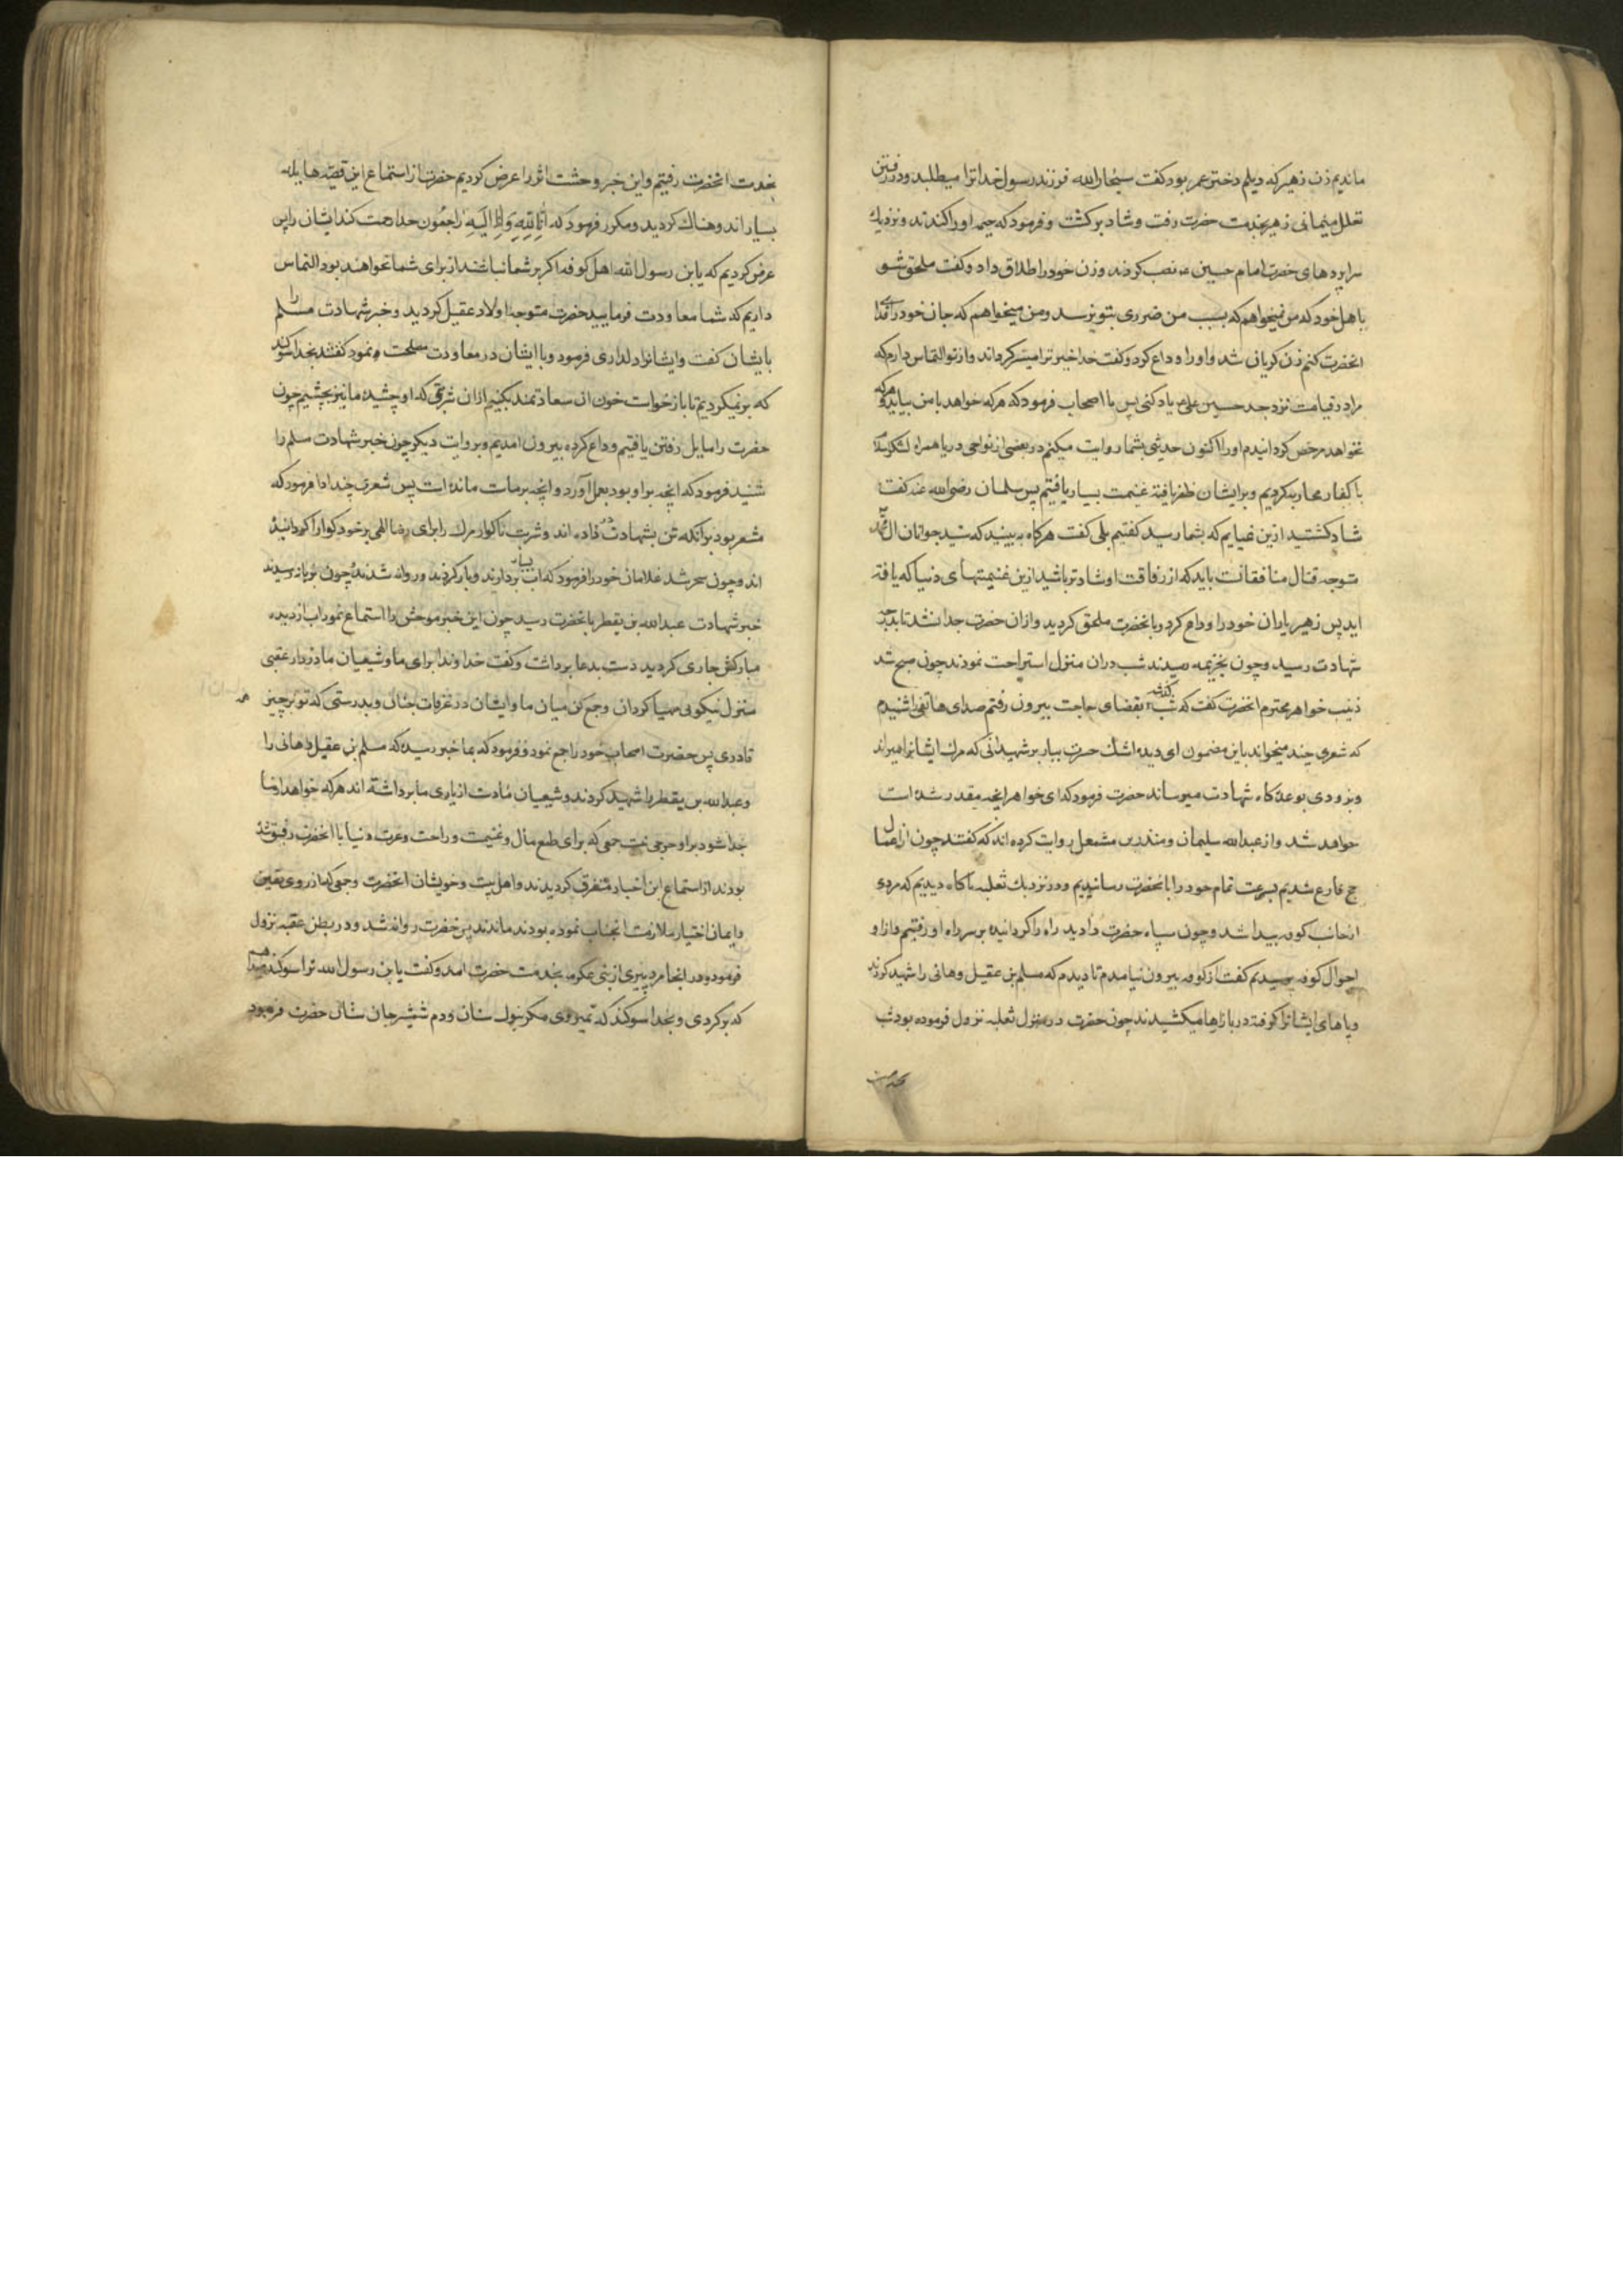 ماندیم زن زهیر که دیلم دختر عمر بود کفت سبحان الله فرزند رسول خدا ترا میطلبد و در رفتن
تعلل مینمائی زهیر بخدمت حضرت رفت و شاد برکشت و فرمود که خیمه او را کندند و نزدیك
سراپرده‌های حضرت امام حسین نصب کردند و زن خود را طلاق داد و کفت ملحق شو
باهل خود که من نمیخواهم که بسبب من ضرری بتو برسد و من میخواهم که جان خود را فدای
انحضرت کنم زن کریان شد و او را وداع کرد و کفت خدا خیر ترا میسر کرداند و از تو التماس دارم که
مرا در قیامت نزد جد حسین یاد کنی پس با اصحاب فرمود که هرکه خواهد با من بیاید و هرکه
نخواهد مرخص کردانیدم او را اکنون حدیثی بشما روایت میکنم در بعضی از نواحی دریا همراه لشکر
با کفار محاربه کردیم و برایشان ظفر یافته غنیمت بسیار یافتیم پس سلمان رضی الله عنه کفت
شاد کشتید ازین غنایم که بشما رسید کفتیم بلی کفت هرکاه به بینید که سید جوانان ال محمد
متوجه قتال منافقانت باید که از رفاقت او شادتر باشید ازین غنیمتهای دنیا که یافته
اید پس زهیر یاران خود را وداع کرد و بانحضرت ملحق کردید و ازان حضرت جدا نشد تا بدرجه
شهادت رسید و چون بخزیمه رسیدند شب دران منزل استراحت نمودند چون صبح شد
زینب خواهر محترم انحضرت کفت که شب کذشته بقضای حاجت بیرون رفتم صدای هاتفی را شنیدم
که شعری چند میخواند باین مضمون ای دیده اشك حسرت ببار بر شهیدانی که مرك ایشانرا میراند
و بزودی بوعده کاه شهادت میرساند حضرت فرمود که ای خواهر انچه مقدر شده است
خواهد شد و از عبدالله سلیمان و منذر بن مشمعل روایت کرده اند که کفتند چون از اعمال
حج فارغ شدیم بسرعت تمام خود را بانحضرت رسانیدیم و در نزدیك ثعلبه ناکاه دیدیم که مردی
از جانب کوفه پیدا شد و چون سپاه حضرت را دید راه را کردانیده بر سر راه او رفتیم و از او
احوال کوفه پرسیدیم کفت از کوفه بیرون نیامدم تا دیدم که مسلم بن عقیل و هانی را شهید کردند
و پاهای ایشانرا کرفته در بازارها میکشیدند چون حضرت در منزل ثعلبه نزول فرموده بود شب
بخدمت
بخدمت انحضرت رفتیم و این خبر وحشت اثر را عرض کردیم حضرت از استماع این قصه هایله
بسیار اندوهناك کردید و مکرر فرمود که اِنّا لِلّهِ وَاِنّا اِلَیهِ راجِعُون خدا رحمت کند ایشان را پس
عرض کردیم که یابن رسول الله اهل کوفه اکر بر شما نباشند از برای شما نخواهند بود التماس
داریم که شما معاودت فرمایید حضرت متوجه اولاد عقیل کردید و خبر شهادت مسلم را
بایشان کفت و ایشانرا دلداری فرمود و با ایشان در معاودت مصلحت نمود کفتند بخدا سوکند
که بر نمیکردیم تا بازخواست خون ان سعادتمند بکنیم یا ازان شربتی که او چشیده ما نیز بچشیم چون
حضرت را مایل رفتن یافتیم وداع کرده بیرون امدیم و بروایت دیکر چون خبر شهادت مسلم را
شنید فرمود که انچه بر او بود بعمل آورد و انچه بر ماست مانده است پس شعری چند ادا فرمود که
مشعر بود بر انکه تن بشهادت در داده اند و شربت ناکوار مرك را برای رضا الهی بر خود کوارا کردانیده
اند و چون سحر شد غلامان خود را فرمود که اب بسیار بردارند و بار کردند و روانه شدند چون بزباله رسیدند
خبر شهادت عبدالله بن یقطر بانحضرت رسید چون این خبر موحش را استماع نمود اب از دیده
مبارکش جاری کردید دست بدعا برداشت و کفت خداوندا برای ما و شیعیان ما در دار عقبی
منزل نیکویی مهیا کردان و جمع کن میان ما و ایشان در غرفات جنان و بدرستی که تو بر همه چیز
قادری پس حضرت اصحاب خود را جمع نمود و فرمود که بما خبر رسیده که مسلم بن عقیل و هانی را
و عبدالله بن یقطر را شهید کردند و شیعیان ما دست از یاری ما برداشته اند هرکه خواهد از ما
جدا شود بر او حرجی نیست جمعی که برای طمع مال و غنیمت و راحت و عزت دنیا با انحضرت رفیق شده
بودند از استماع این اخبار متفرق کردیدند و اهل بیت و خویشان انحضرت و جمعی که از روی یقین
و ایمان اختیار ملازمت انجناب نموده بودند ماندند پس حضرت روانه شد و در بطن عقبه نزول
فرمود و در انجا مرد پیری از بنی عکرمه بخدمت حضرت امد و کفت یابن رسول الله ترا سوکند میدهم
که برکردی و بخدا سوکند که نمیروی مکر بنوك سنان و دم شمشیر جان ستان حضرت فرمود